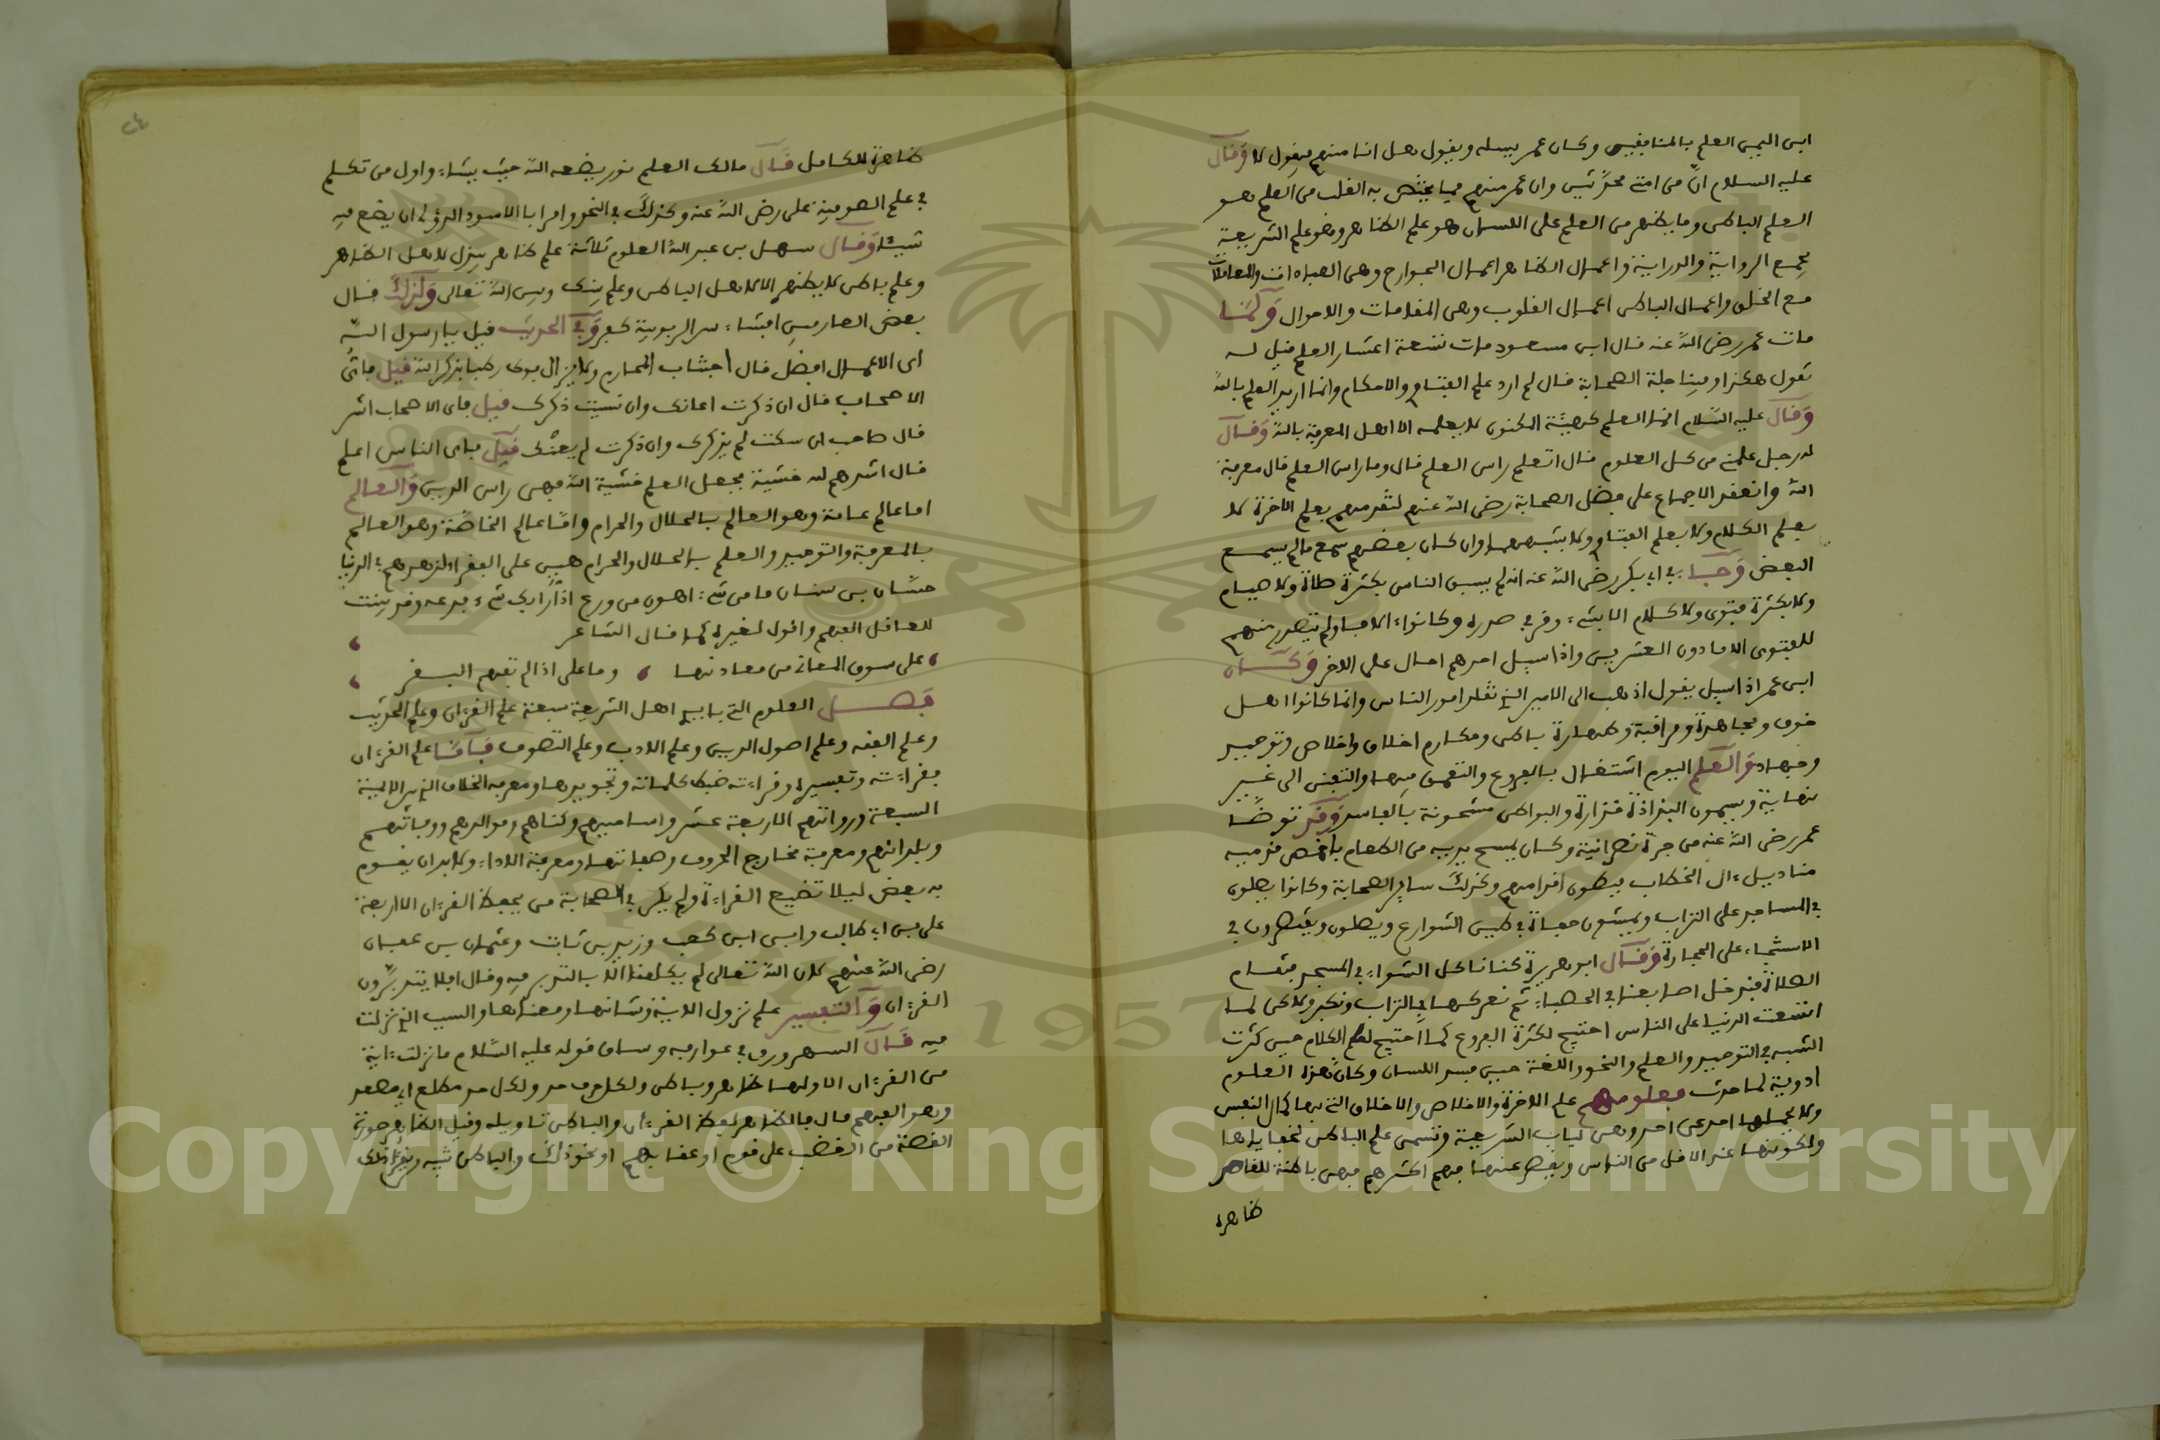 ابن اليمن العلم بالمنافقين وكان عمر يسله ويقول هل انا منهم فيقول لا وقال
عليه السلام ان من امتي محدثين وان عمر منهم فما يختص به القلب من العلم هو
العلم الباطن وما يظهر من العلم على اللسان هو علم الظاهر وهو علم الشريعة
يجمع الرواية والدراية واعمال الظاهر اعمال الجوارح وهي العبادات والمعاملات
مع الخلق واعمال الباطن اعمال القلوب وهي المقامات والاحوال ولما
مات عمر رضي الله عنه قال ابن مسعود مات تسعة اعشار العلم فقيل له
تقول هكذا وفينا جلة الصحابة قال لم ارد علم الفتيا والاحكام وانما اريد العلم بالله
وقال عليه السلام ان من العلم كهيئة المكنون لا يعلمه الا اهل المعرفة بالله وقال
له رجل علمني من كل العلوم قال اتعلم راس العلم قال وما راس العلم قال معرفة
الله وانعقد الاجماع على فضل الصحابة رضي الله عنهم لتقدمهم بعلم الاخرة لا
بعلم الكلام ولا بعلم الفتيا ولا بشبههما وان كان بعضهم سمع ما لم يسمع
البعض وجاء في ابي بكر رضي الله عنه انه لم يسبق الناس بكثرة صلاة ولا صيام
ولا بكثرة فتوى ولا كلام الا بشيء وقر في صدره وكانوا الافا ولم يتصدر منهم
للفتوى الا ما دون العشرين واذا سيل احدهم احال على الاخر وكان
ابن عمر اذا سيل يقول اذهب الى الامير الذي تقلد امور الناس وانما كانوا اهل
خوف ومجاهدة ومراقبة وطهارة باطن ومكارم اخلاق واخلاص وتوحيد
وجهاد والعلم اليوم اشتغال بالفروع والتعمق فيها والتفنن الى غير
نهاية ويسمون البذاذة قذارة والبواطن مشحونة بالمفاسد وقد توضا
عمر رضي الله عنه من جرة نصرانية وكان يمسح يديه من الطعام باخمص قدميه
مناديل ءال الخطاب بطون اقدامهم وكذلك ساير الصحابة وكانوا يصلون
في المساجد على التراب ويمشون حفاة في طين الشوارع ويصلون ويقتصرون في
الاستنجاء على الحجارة وقال ابو هريرة كنا ناكل الشواء في المسجد فتقام
الصلاة فندخل اصابعنا في الحصباء ثم نفركها في التراب ونكبر ولاكن لما
اتسعت الدنيا على الناس احتيج لكثرة الفروع كما احتيج لعلم الكلام حين كثرت
الشبه في التوحيد والعلم والنحو واللغة حين فسد اللسان وكان هذه العلوم
ادوية لما حدث فعلومهم علم الاخرة والاخلاص والاخلاق التي بها كمال النفس
ولا يجهلها احد عن احد وهي لباب الشريعة وتسمى علم الباطن لخفايها
ولكونها عند الاقل من الناس ويقصر عنها فهم اكثرهم فهي باطنة للقاصر
ظاهرة
ظاهرة للكامل قال مالك العلم نور يضعه الله حيث يشاء واول من تكلم
في علم الصوفية على رضي الله عنه وكذلك في النحو وامر ابا الاسود الدؤلي ان يضع فيه
شيئا وقال سهل بن عبد الله العلوم ثلاثة علم ظاهر يبذل لاهل الظاهر
وعلم باطن لا يظهر الا لاهل الباطن وعلم بينك وبين الله تعالى ولذلك قال
بعض العارفين افشاء سر الربوبية كفر وفي الحديث قيل يا رسول الله
اي الاعمال افضل قال اجتناب المحارم ولا يزال فوك رطبا بذكر الله قيل فاي
الاصحاب قال ان ذكرت اعانك وان نسيت ذكرك قيل فاي الاصحاب اشر
قال صاحب ان سكت لم يذكرك وان ذكرت لم يعنك قيل فاي الناس اعلم
قال اشدهم لله خشية فجعل العلم خشية الله فهي راس الدين والعالم
اما عالم عامة وهو العالم بالحلال والحرام واما عالم الخاصة وهو العالم
بالمعرفة والتوحيد والعلم بالحلال والحرام هين على الفقراء لزهدهم في الدنيا
حسان بن سنان ما من شيء اهون من ورع اذا رابك شيء فدعه وقد بينت
للعاقل الفهم واقول لغيره كما قال الشاعر
على سوق المعاني من معادنها وما على اذا لم تفهم البقر
فصل العلوم التي بايدي اهل الشريعة سبعة علم القرءان وعلم الحديث
وعلم الفقه وعلم اصول الدين وعلم الادب وعلم التصوف فاما علم القرءان
فقراءته وتفسيره وقراءته ضبط كلماته وتجويدها ومعرفة الخلاف الذي بين الايمة
السبعة ورواتهم الاربعة عشر واساميهم وكناهم وموالدهم ووفاتهم
وبلدانهم ومعرفة مخارج الحروف وصفاتها ومعرفة الاداء ولا بد ان يقوم
به بعض ليلا تضيع القراءة ولم يكن في الصحابة من يحفظ القرءان الا اربعة
علي بن ابي طالب وابي ابن كعب وزيد بن ثابت وعثمان بن عفان
رضي الله عنهم لان الله تعالى لم يكلفنا الا بالتدبر فيه وقال افلا يتدبرون
القرءان والتفسير علم نزول الاية وشانها ومعناها والسبب الذي نزلت
فيه قال السهروردي في عوارفه وساق قوله عليه السلام ما نزلت ءاية
من القرءان الا ولها ظاهر وباطن ولكل حرف حد ولكل حد مطلع اي مصعد
وهو الفهم قال فالظاهر لفظ القرءان والباطن تاويله وقيل الظاهر صورة
القصة من الغضب على قوم او عقابهم او نحو ذلك والباطن تنبيه